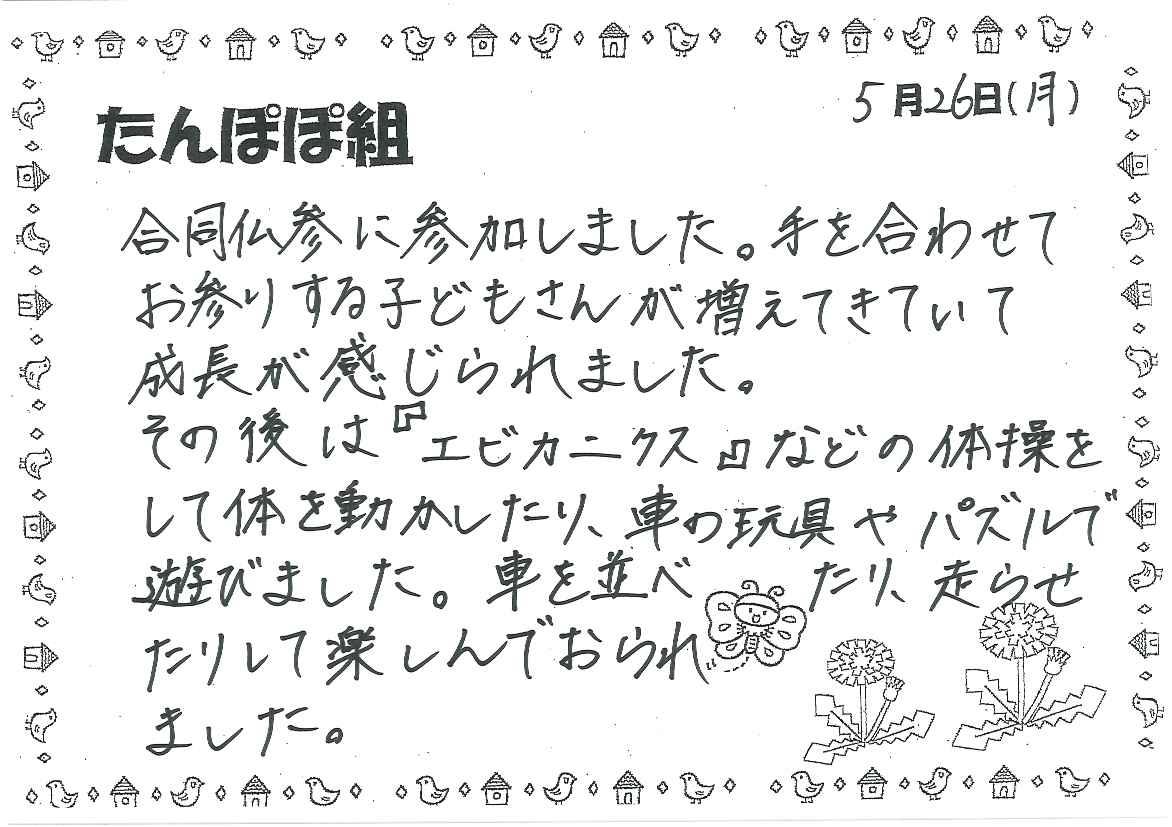 5月26日(月)
たんぽぽ組
合同仏参に参加しました。手を合わせて
お参りする子どもさんが増えてきていて
成長が感じられました。
その後は『エビカニクス』などの体操を
して体を動かしたり、車の玩具やパズルで
遊びました。車を並べたり、走らせ
たりして楽しんでおられ
ました。